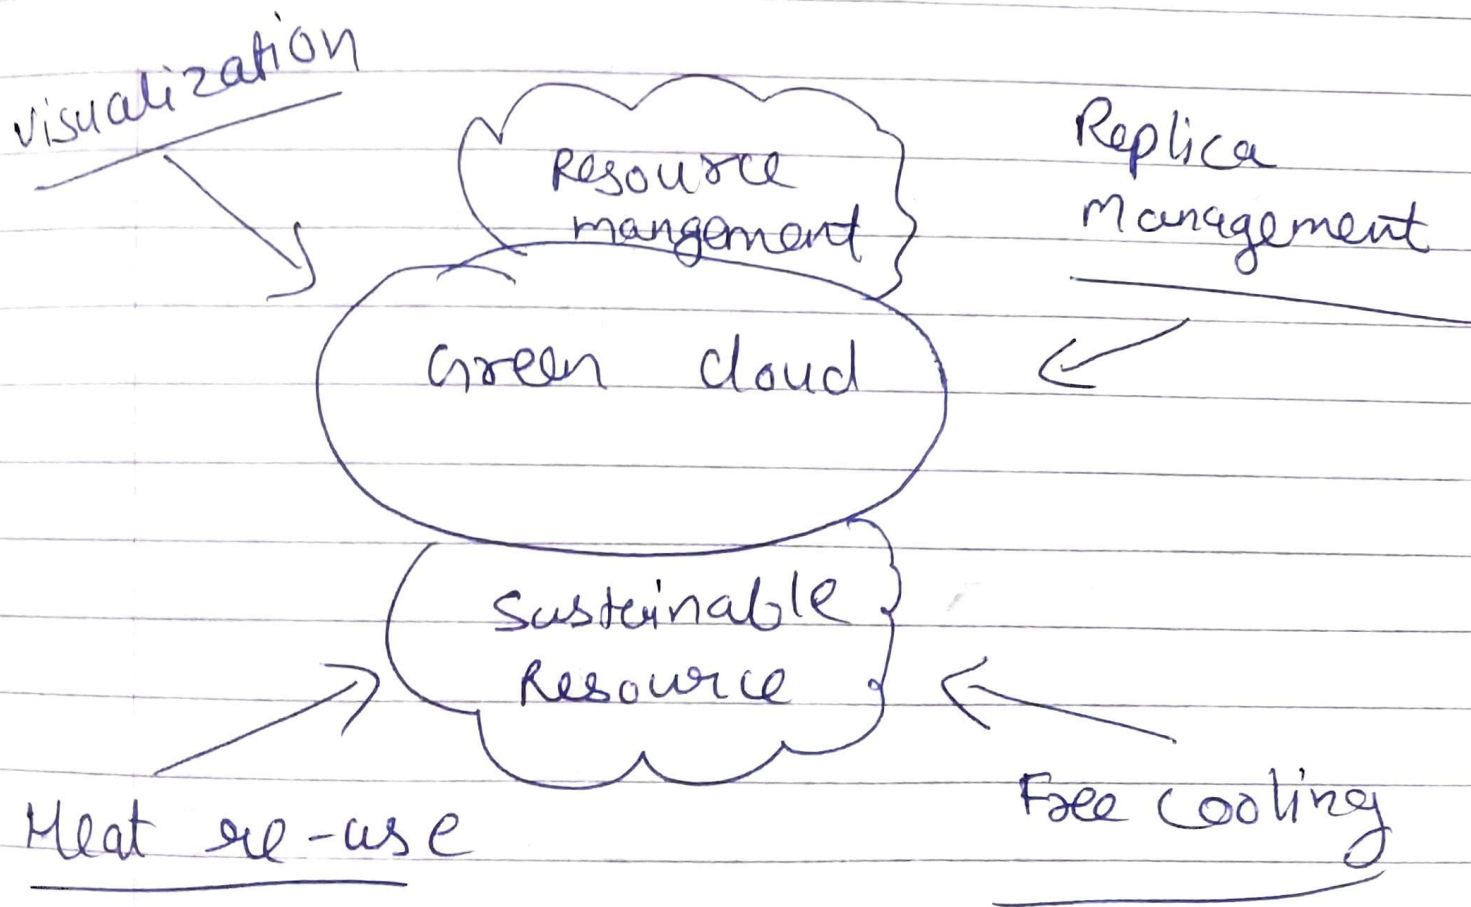 visualization
Resource
mangement
Replica
Management
Green cloud
Sustainable
Resource
Heat re-use
Free cooling